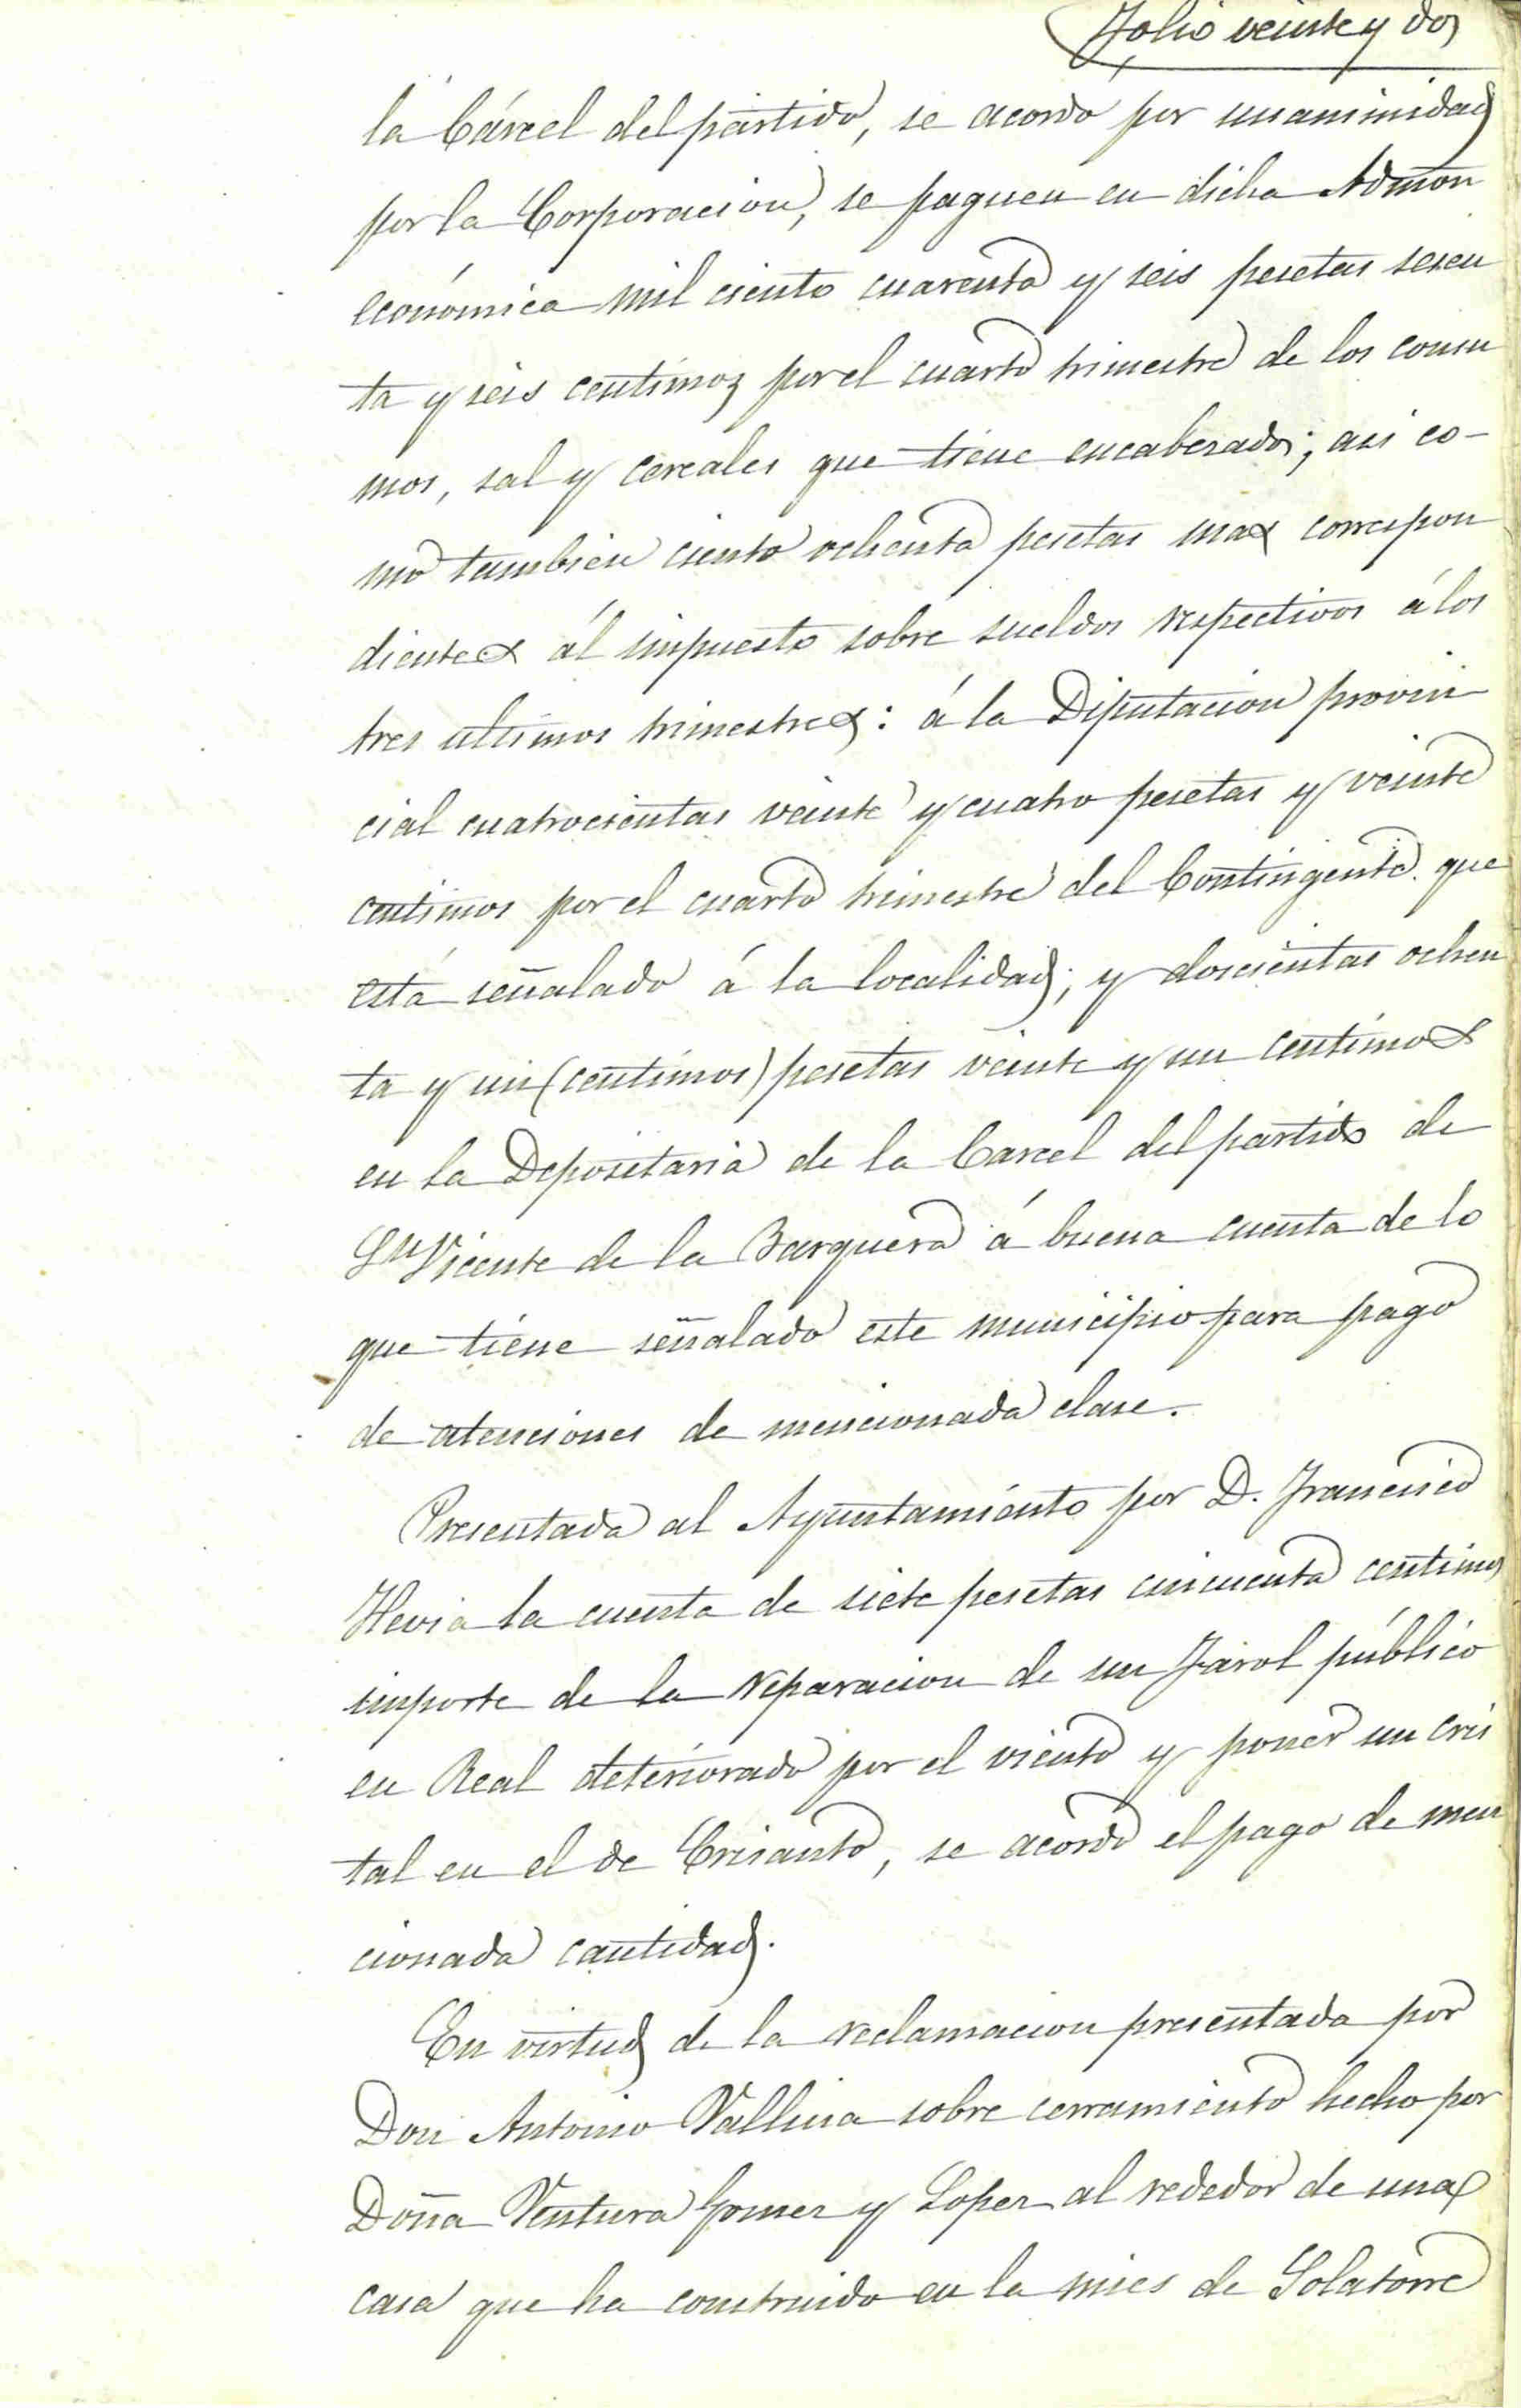 Folio veinte y dos
la Cárcel del partido, se acordo por unanimidad
por la Corporacion, se paguen en dicha Admon
económica mil ciento cuarenta y seis pesetas sesen
ta y seis centimos por el cuarto trimestre de los consu
mos, sal y cereales que tiene encabezados; asi co-
mo tambien ciento ochenta pesetas mas correspon
dientes ál impuesto sobre sueldos respectivos á los
tres ultimos trimestres: á la Diputacion provin
cial cuatrocientas veinte y cuatro pesetas y veinte
centimos por el cuarto trimestre del Contingente que
está señalado á la localidad; y doscientas ochen
ta y un (centimos) pesetas veinte y un centimos
en la Depositaria de la Carcel del partido de
Sn Vicente de la Barquera á buena cuenta de lo
que tiene señalado este municipio para pago
de atenciones de mencionada clase.
Presentada al Ayuntamiento por D. Francisco
Hevia la cuenta de siete pesetas cincuenta centimos
importe de la reparacion de un Farol público
en Real deteriorado por el viento y poner un cris
tal en el de Crisanto, se acordó el pago de men
cionada cantidad.
En virtud de la reclamacion presentada por
Don Antonio Vallina sobre cerramiento hecho por
Doña Ventura Gomez y Lopez al rededor de una
casa que ha construido en la mies de Solatorre